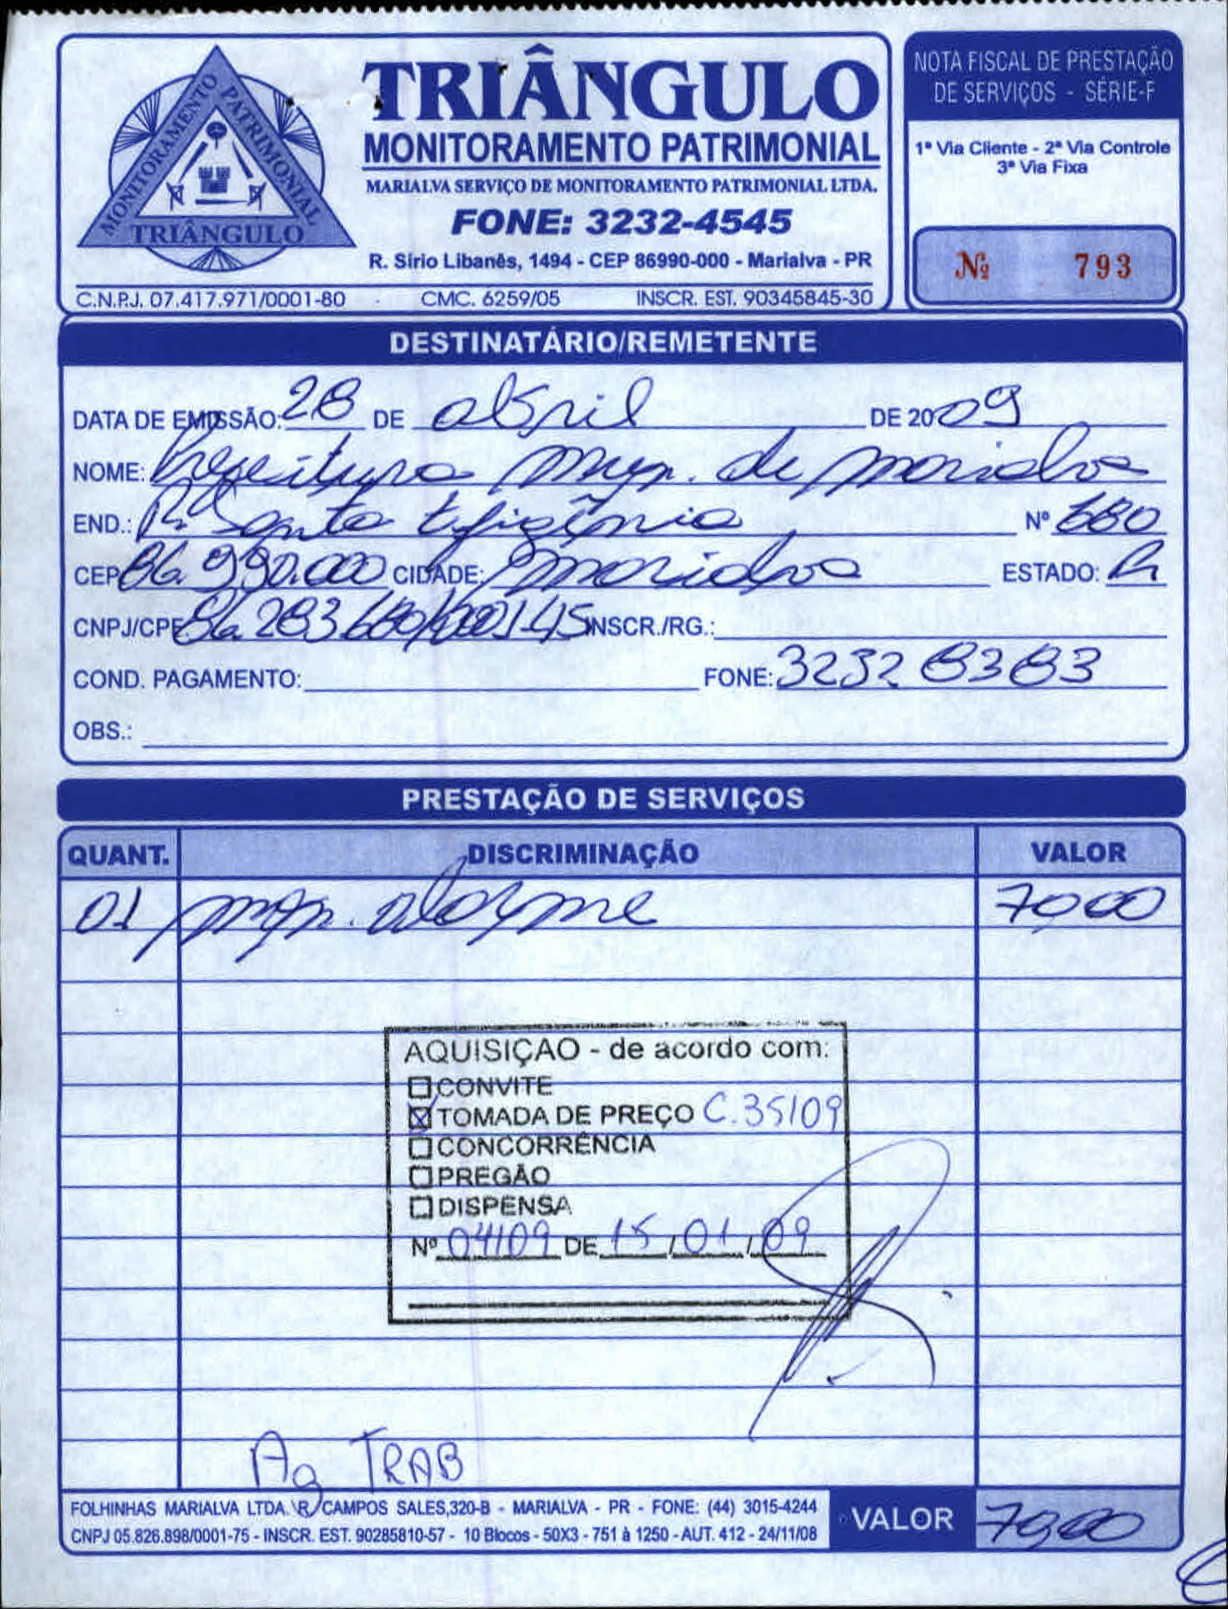 MONITORAMENTO PATRIMONIAL
TRIÂNGULO
TRIÂNGULO
MONITORAMENTO PATRIMONIAL
MARIALVA SERVIÇO DE MONITORAMENTO PATRIMONIAL LTDA.
FONE: 3232-4545
R. Sírio Libanês, 1494 - CEP 86990-000 - Marialva - PR
C.N.P.J. 07.417.971/0001-80 CMC. 6259/05 INSCR. EST. 90345845-30
NOTA FISCAL DE PRESTAÇÃO
DE SERVIÇOS - SÉRIE-F
1ª Via Cliente - 2ª Via Controle
3ª Via Fixa
Nº 793
DESTINATÁRIO/REMETENTE
DATA DE EMISSÃO: 28 DE abril DE 2009
NOME: Prefeitura Mun. de Marialva
END.: R Santa Efigênia Nº 680
CEP 86.990.000 CIDADE: Marialva ESTADO: Pr
CNPJ/CPF 283680/0001-45 INSCR./RG.:
COND. PAGAMENTO: FONE: 3232 8383
OBS.:
PRESTAÇÃO DE SERVIÇOS
QUANT. DISCRIMINAÇÃO VALOR
01 alarme 70,00
AQUISIÇAO - de acordo com:
CONVITE
TOMADA DE PREÇO C.35/09
CONCORRÊNCIA
PREGÃO
DISPENSA
Nº 04/09 DE 15/01/09
Ag TRAB
FOLHINHAS MARIALVA LTDA. R. CAMPOS SALES,320-B - MARIALVA - PR - FONE: (44) 3015-4244
CNPJ 05.826.898/0001-75 - INSCR. EST. 90285810-57 - 10 Blocos - 50X3 - 751 à 1250 - AUT. 412 - 24/11/08
VALOR 70,00